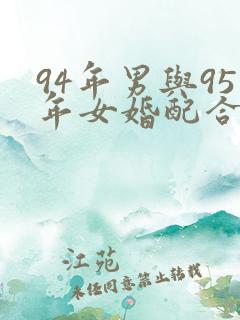 94年男與95
年女婚配合
江苑
未经同意禁止转载